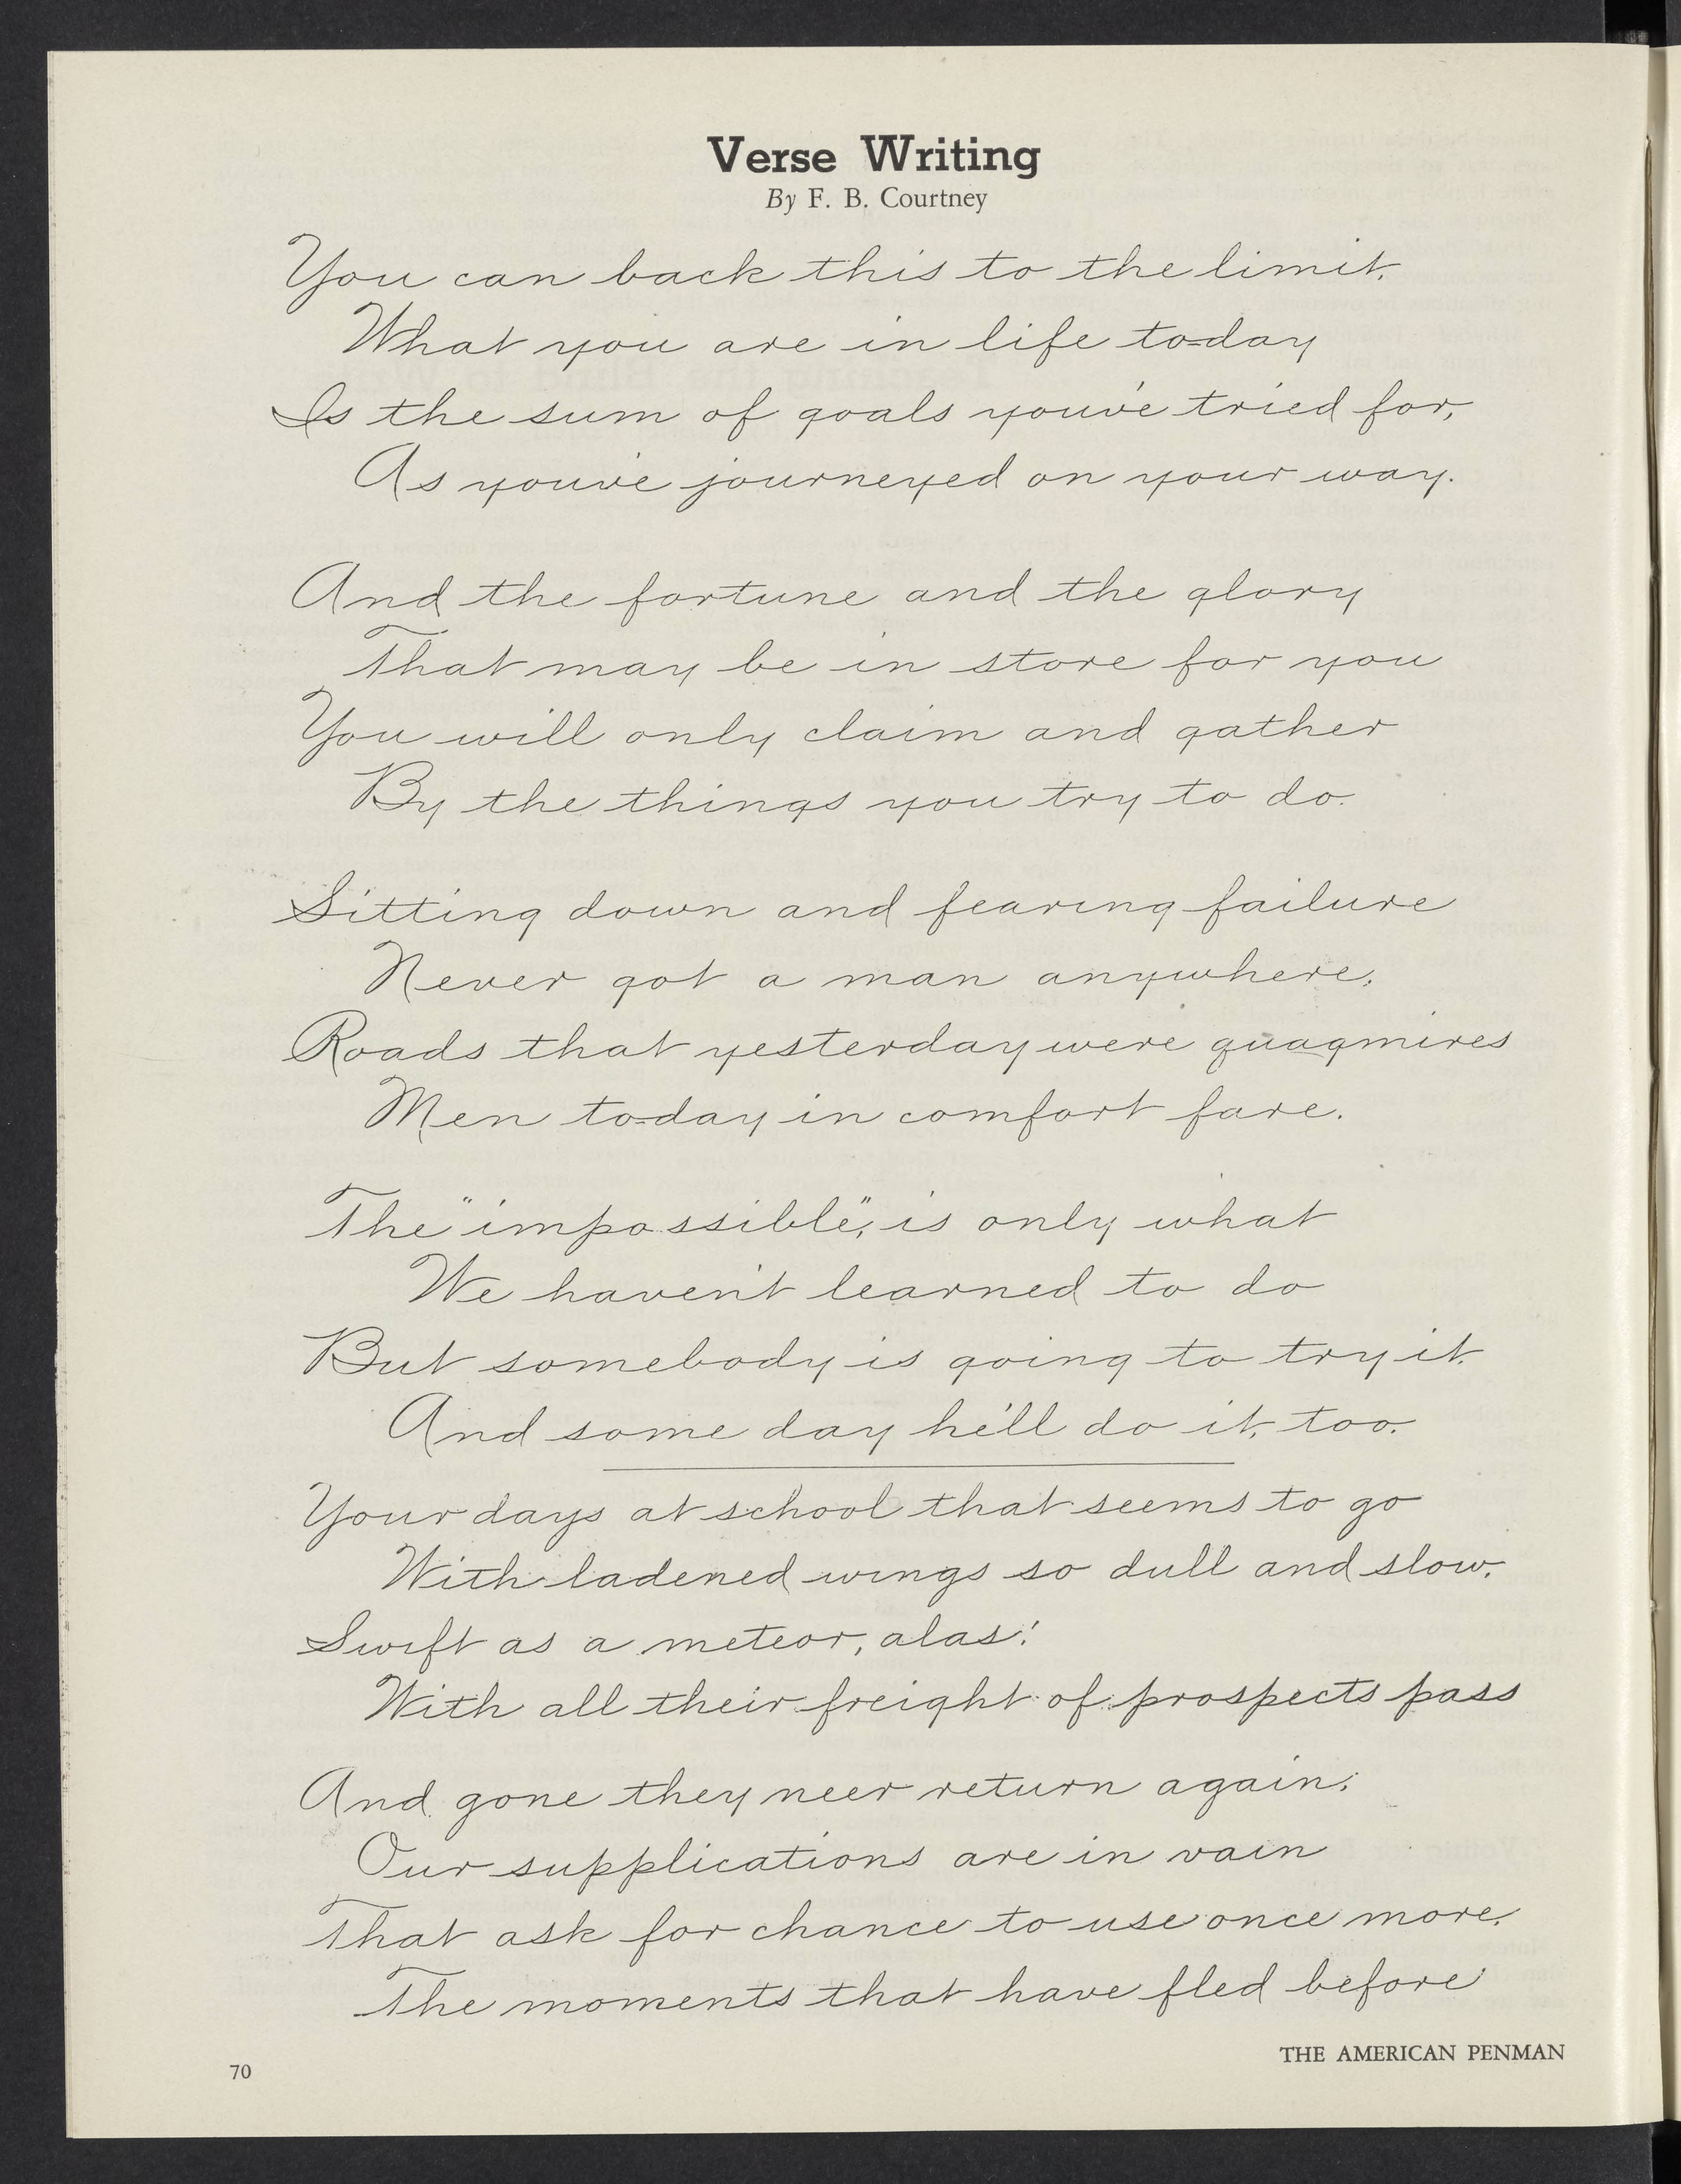 Verse Writing
By F. B. Courtney
You can back this to the limit,
What you are in life to=day
Is the sum of goals you've tried for,
As you've journeyed on your way.
And the fortune and the glory
That may be in store for you
You will only claim and gather
By the things you try to do.
Sitting down and fearing failure
Never got a man anywhere,
Roads that yesterday were quagmires
Men to=day in comfort fare.
The "impossible", is only what
We haven't learned to do
But somebody is going to try it,
And some day he'll do it, too.
Your days at school that seems to go
With ladened wings so dull and slow,
Swift as a meteor, alas!
With all their freight of prospects pass
And gone they neer return again;
Our supplications are in vain
That ask for chance to use once more,
The moments that have fled before
70
THE AMERICAN PENMAN